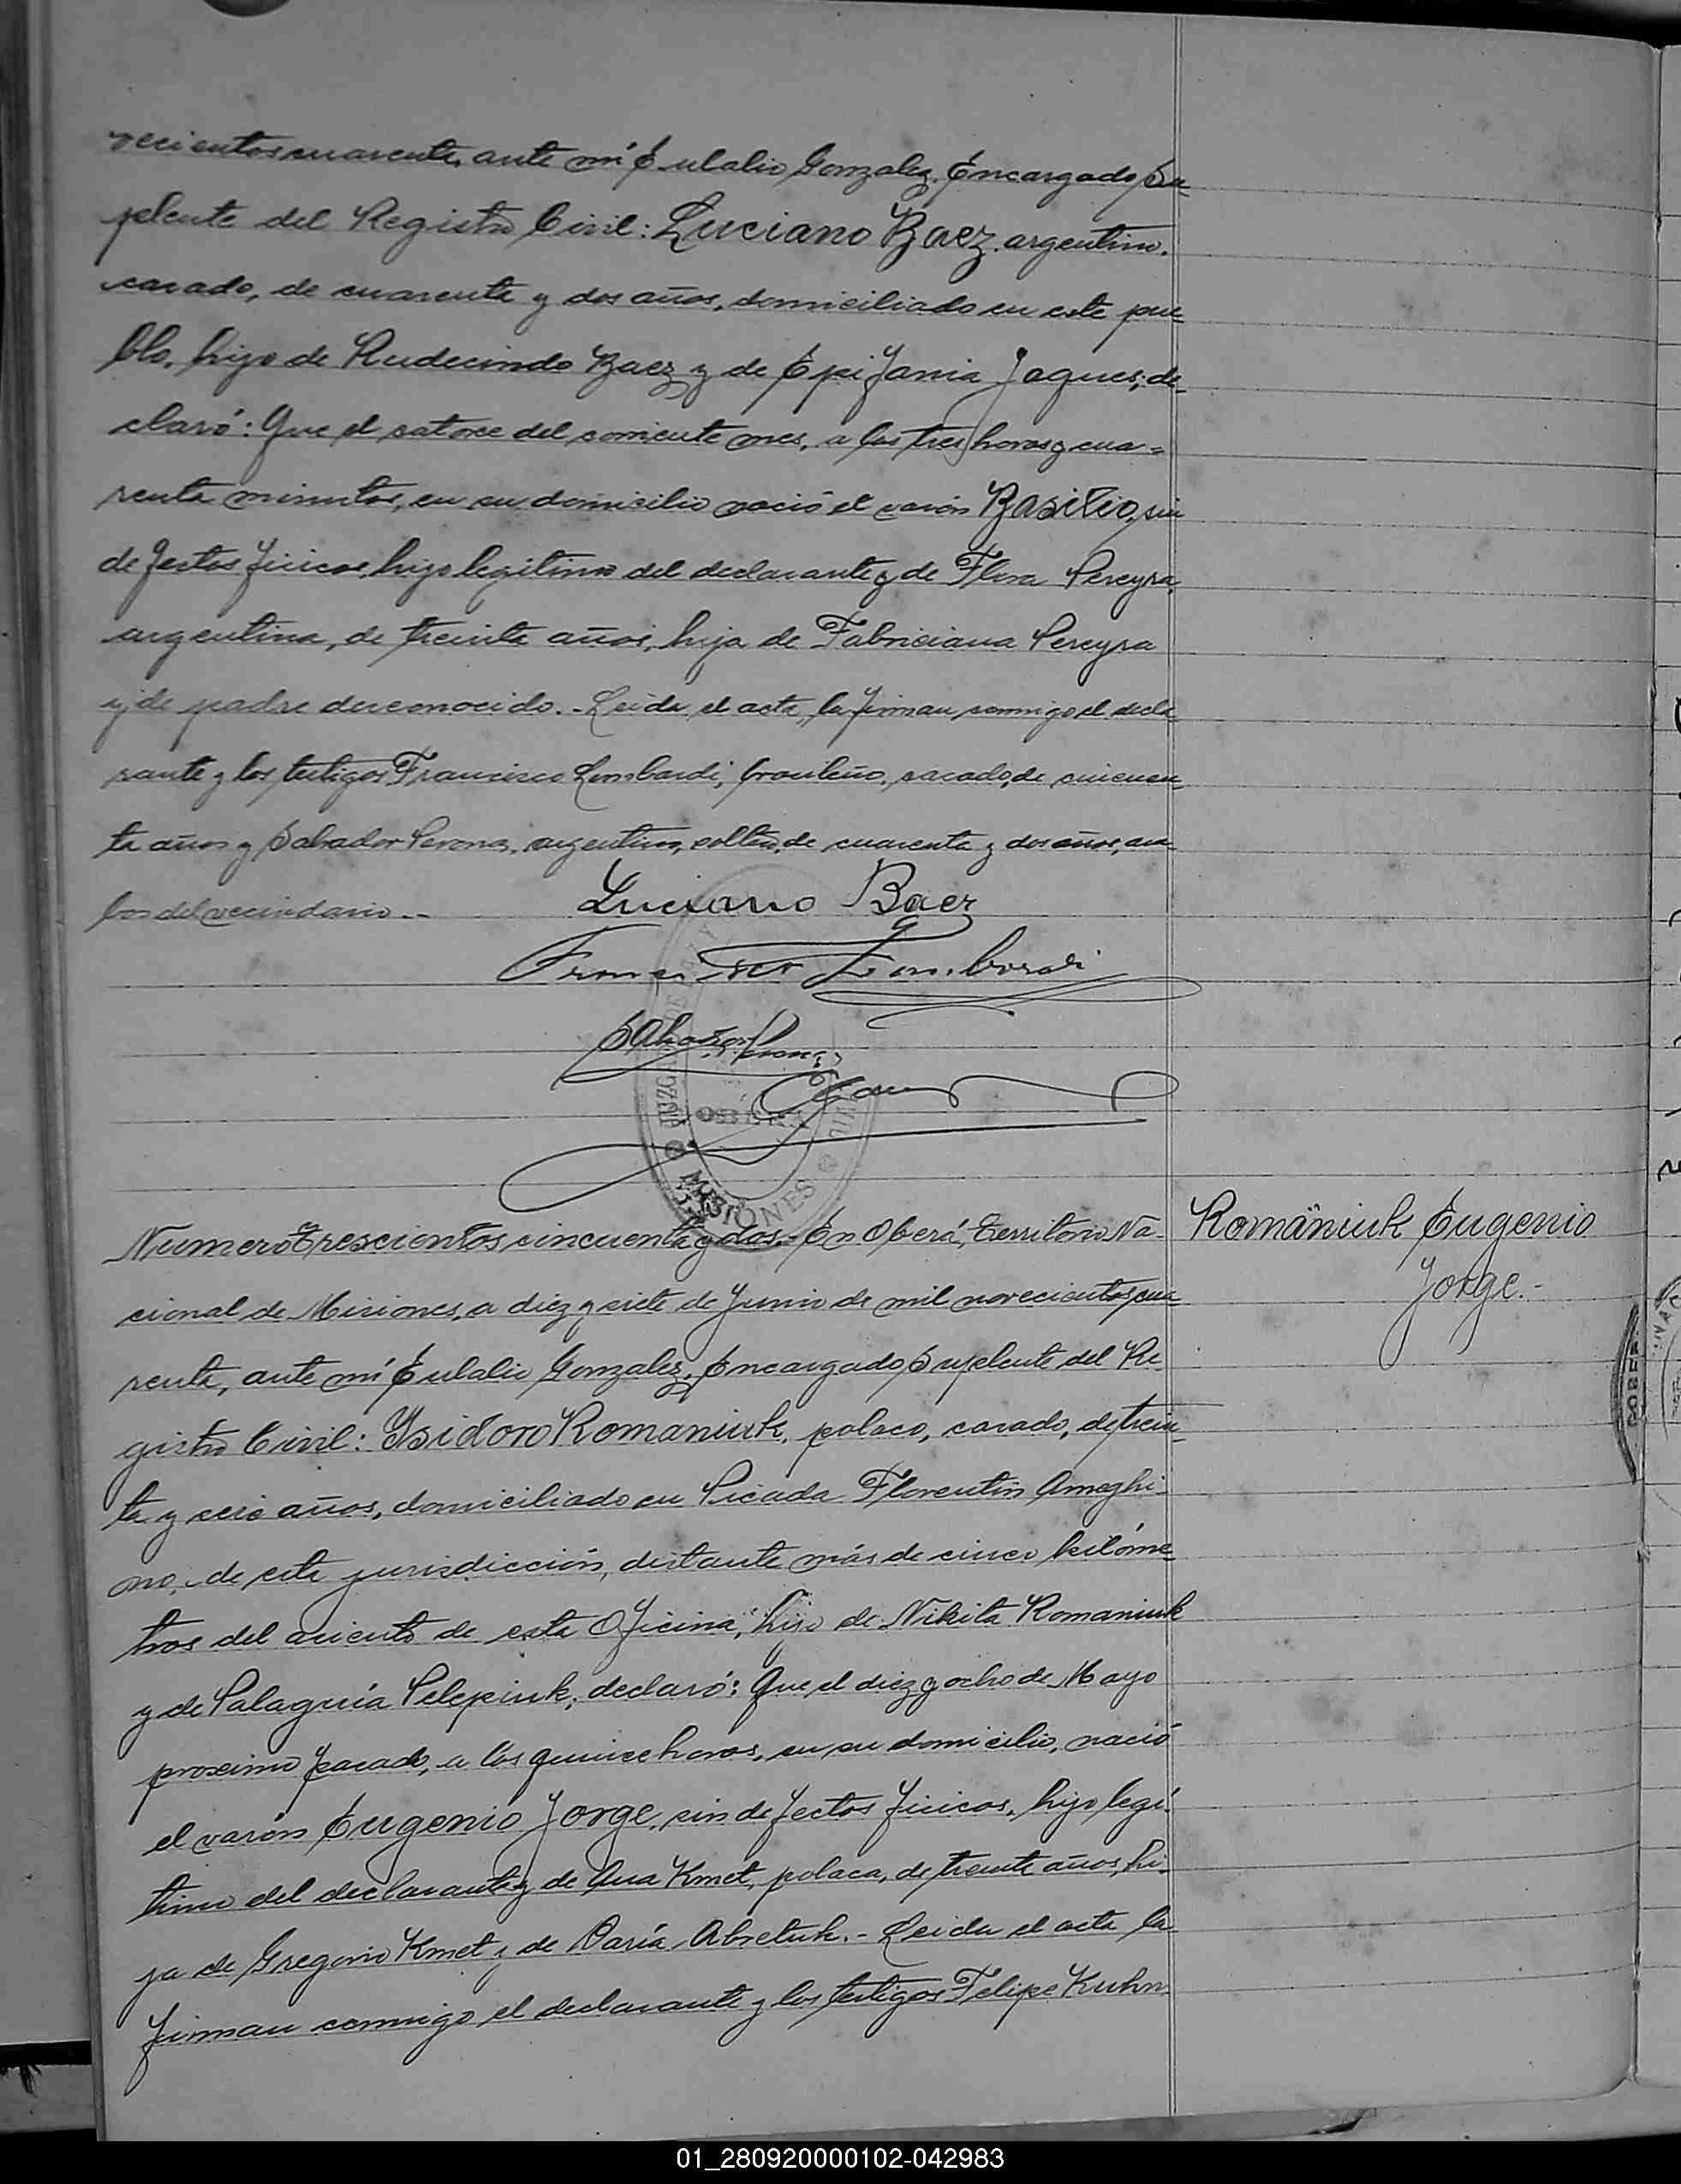 vecientos cuarenta, ante mí Eulalio Gonzalez, Encargado Su-
plente del Registro Civil: Luciano Baez, argentino,
casado, de cuarenta y dos años, domiciliado en este pue-
blo, hijo de Rudecindo Baez y de Epifania Jaques; de-
claró: Que el catorce del corriente mes, a las tres horas y cua-
renta minutos, en su domicilio nació el varón Basilio, sin
defectos fisicos, hijo legítimo del declarante y de Flora Pereyra,
argentina, de treinta años, hija de Fabriciana Pereyra
y de padre desconocido.- Leida el acta, la firman conmigo el decla
rante y los testigos Francisco Lombardi, brasileño, casado, de cincuen-
ta años y Salvador Perona, argentino, soltero, de cuarenta y dos años, am-
bos del vecindario.--
Luciano Baez
Francisco Lombardi
Salvador Perona
JUZGADO DE PAZ
OBERA
MISIONES
Numero Trescientos cincuenta y dos.- En Oberá, Territorio Na-
cional de Misiones, a diez y siete de Junio de mil novecientos cua-
renta, ante mí Eulalio Gonzalez, Encargado Suplente del Re-
gistro Civil: Ysidoro Romaniuk, polaco, casado, de trein-
ta y seis años, domiciliado en Picada Florentin Ameghi-
no, de esta jurisdicción, distante más de cinco kilóme-
tros del asiento de esta Oficina, hijo de Nikita Romaniuk
y de Palaguía Pelepiuk; declaró: Que el diez y ocho de Mayo
proximo pasado, a las quince horas, en su domicilio, nació
el varón Eugenio Jorge, sin defectos fisicos, hijo legí-
timo del declarante y de Ana Kmet, polaca, de treinta años, hi-
ja de Gregorio Kmet y de Daría Abretuk.- Leida el acta la
firman conmigo el declarante y los testigos Felipe Kuhn
Romaniuk Eugenio
Jorge.-
01_280920000102-042983